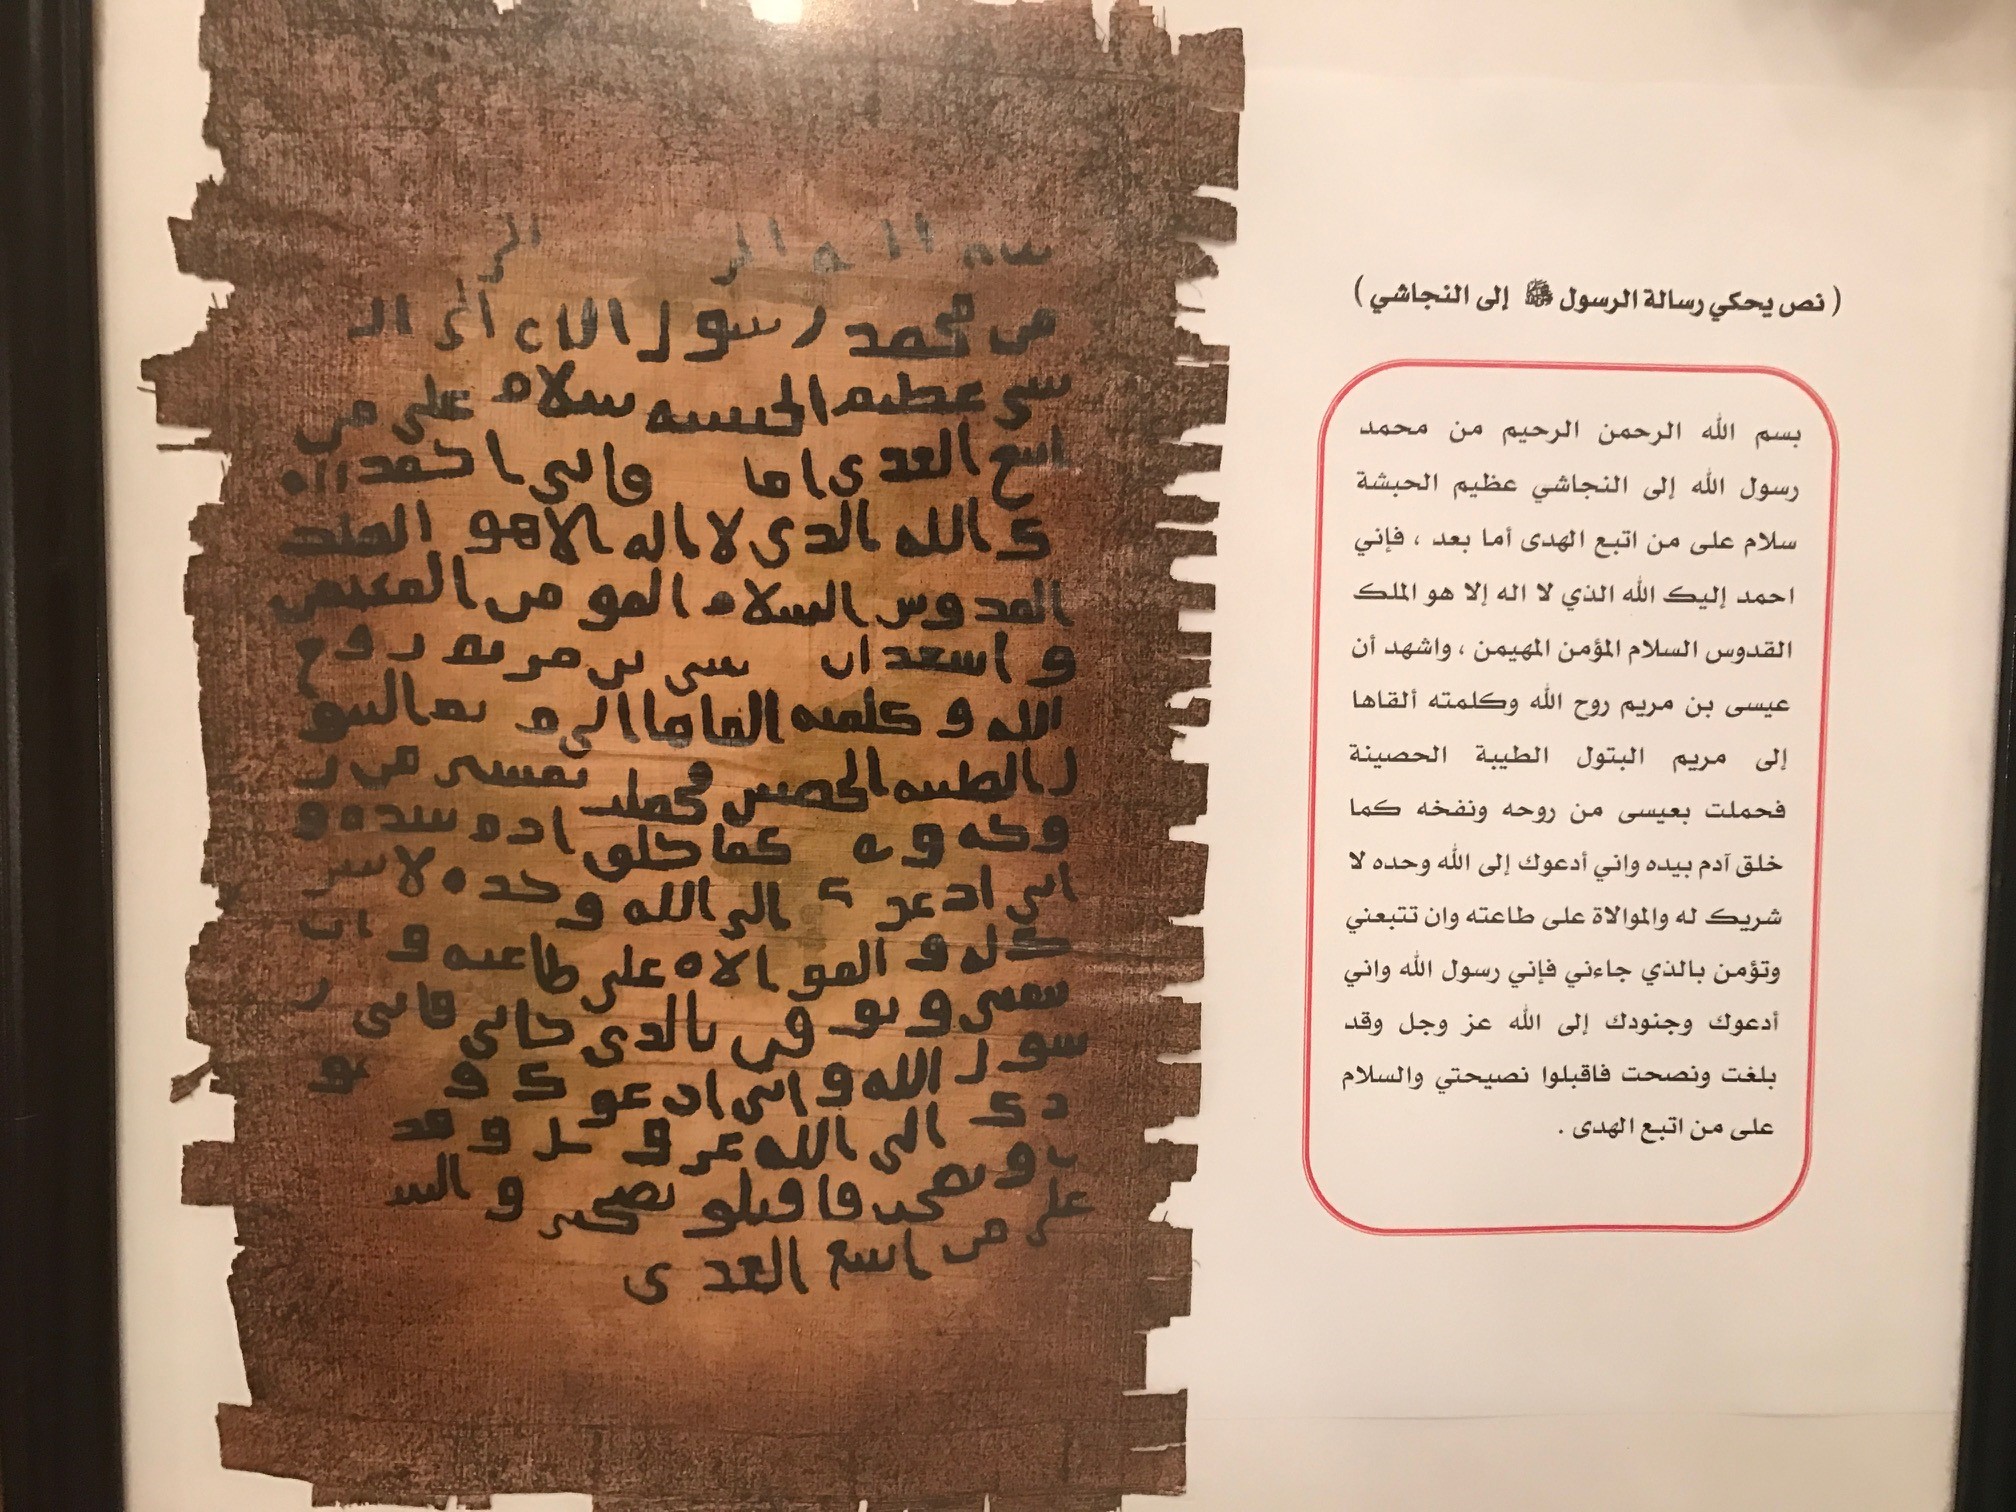 سم الله الر الر
من محمد رسول الله الى الـ
سى عظيم الحبشه سلام على من
اتبع الهدى اما فانى احمد اليـ
ك الله الذى لا اله الا هو الملك
القدوس السلام المومن المهيمن
و اشهد ان سى بن مريم روح
الله و كلمته القاها الى م يم البتو
ل الطيبه الحصين فحملت من ر
و كما خلق ادم بيده و
انى ادعو ك الى الله وحده لا شر
ك له و الموالاه على طاعته و ان
و تو من بالذى جانى فانى ر
سول الله و انى ادعو ك و
دك الى الله عز و جل و قد
و نصحت فاقبلو و السـ
على من اتبع الهدى
( نص يحكي رسالة الرسول ﷺ إلى النجاشي )
بسم الله الرحمن الرحيم من محمد
رسول الله إلى النجاشي عظيم الحبشة
سلام على من اتبع الهدى أما بعد ، فإني
احمد إليك الله الذي لا اله إلا هو الملك
القدوس السلام المؤمن المهيمن ، واشهد أن
عيسى بن مريم روح الله وكلمته ألقاها
إلى مريم البتول الطيبة الحصينة
فحملت بعيسى من روحه ونفخه كما
خلق آدم بيده واني أدعوك إلى الله وحده لا
شريك له والموالاة على طاعته وان تتبعني
وتؤمن بالذي جاءني فإني رسول الله واني
أدعوك وجنودك إلى الله عز وجل وقد
بلغت ونصحت فاقبلوا نصيحتي والسلام
على من اتبع الهدى .